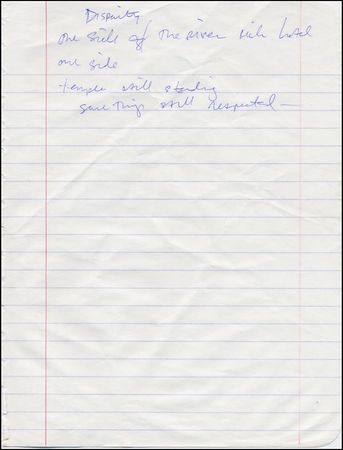 Disparity
one side of the river rich hotel
one side
temple still standing
some things still respected —